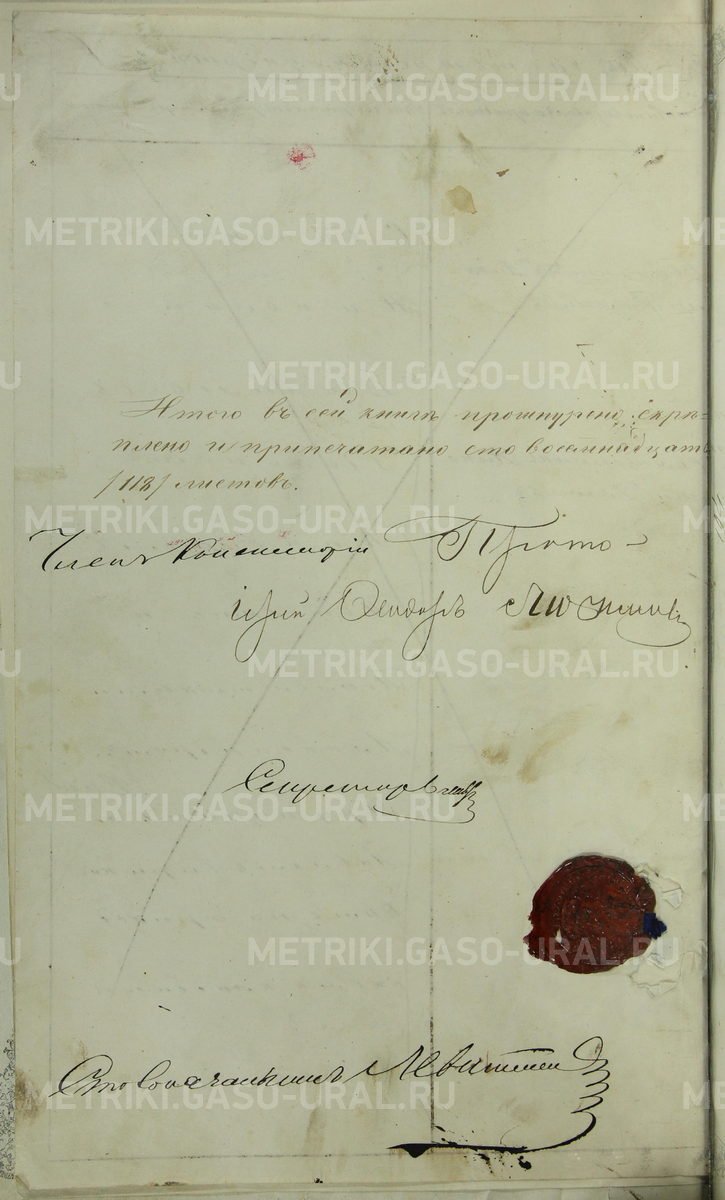 METRIKI.GASO-URAL.RU
METRIKI.GASO-URAL.RU
METRIKI.GASO-URAL.RU
Итого въ сей книгѣ прошнурено, скрѣ=
плено и припечатано сто восемнадцать
/118/ листовъ.
METRIKI.GASO-URAL.RU
Членъ Консисторіи Прото-
іерей
METRIKI.GASO-URAL.RU
Секретарь
METRIKI.GASO-URAL.RU
METRIKI.GASO-URAL.RU
Столоначальникъ
METRIKI.GASO-URAL.RU